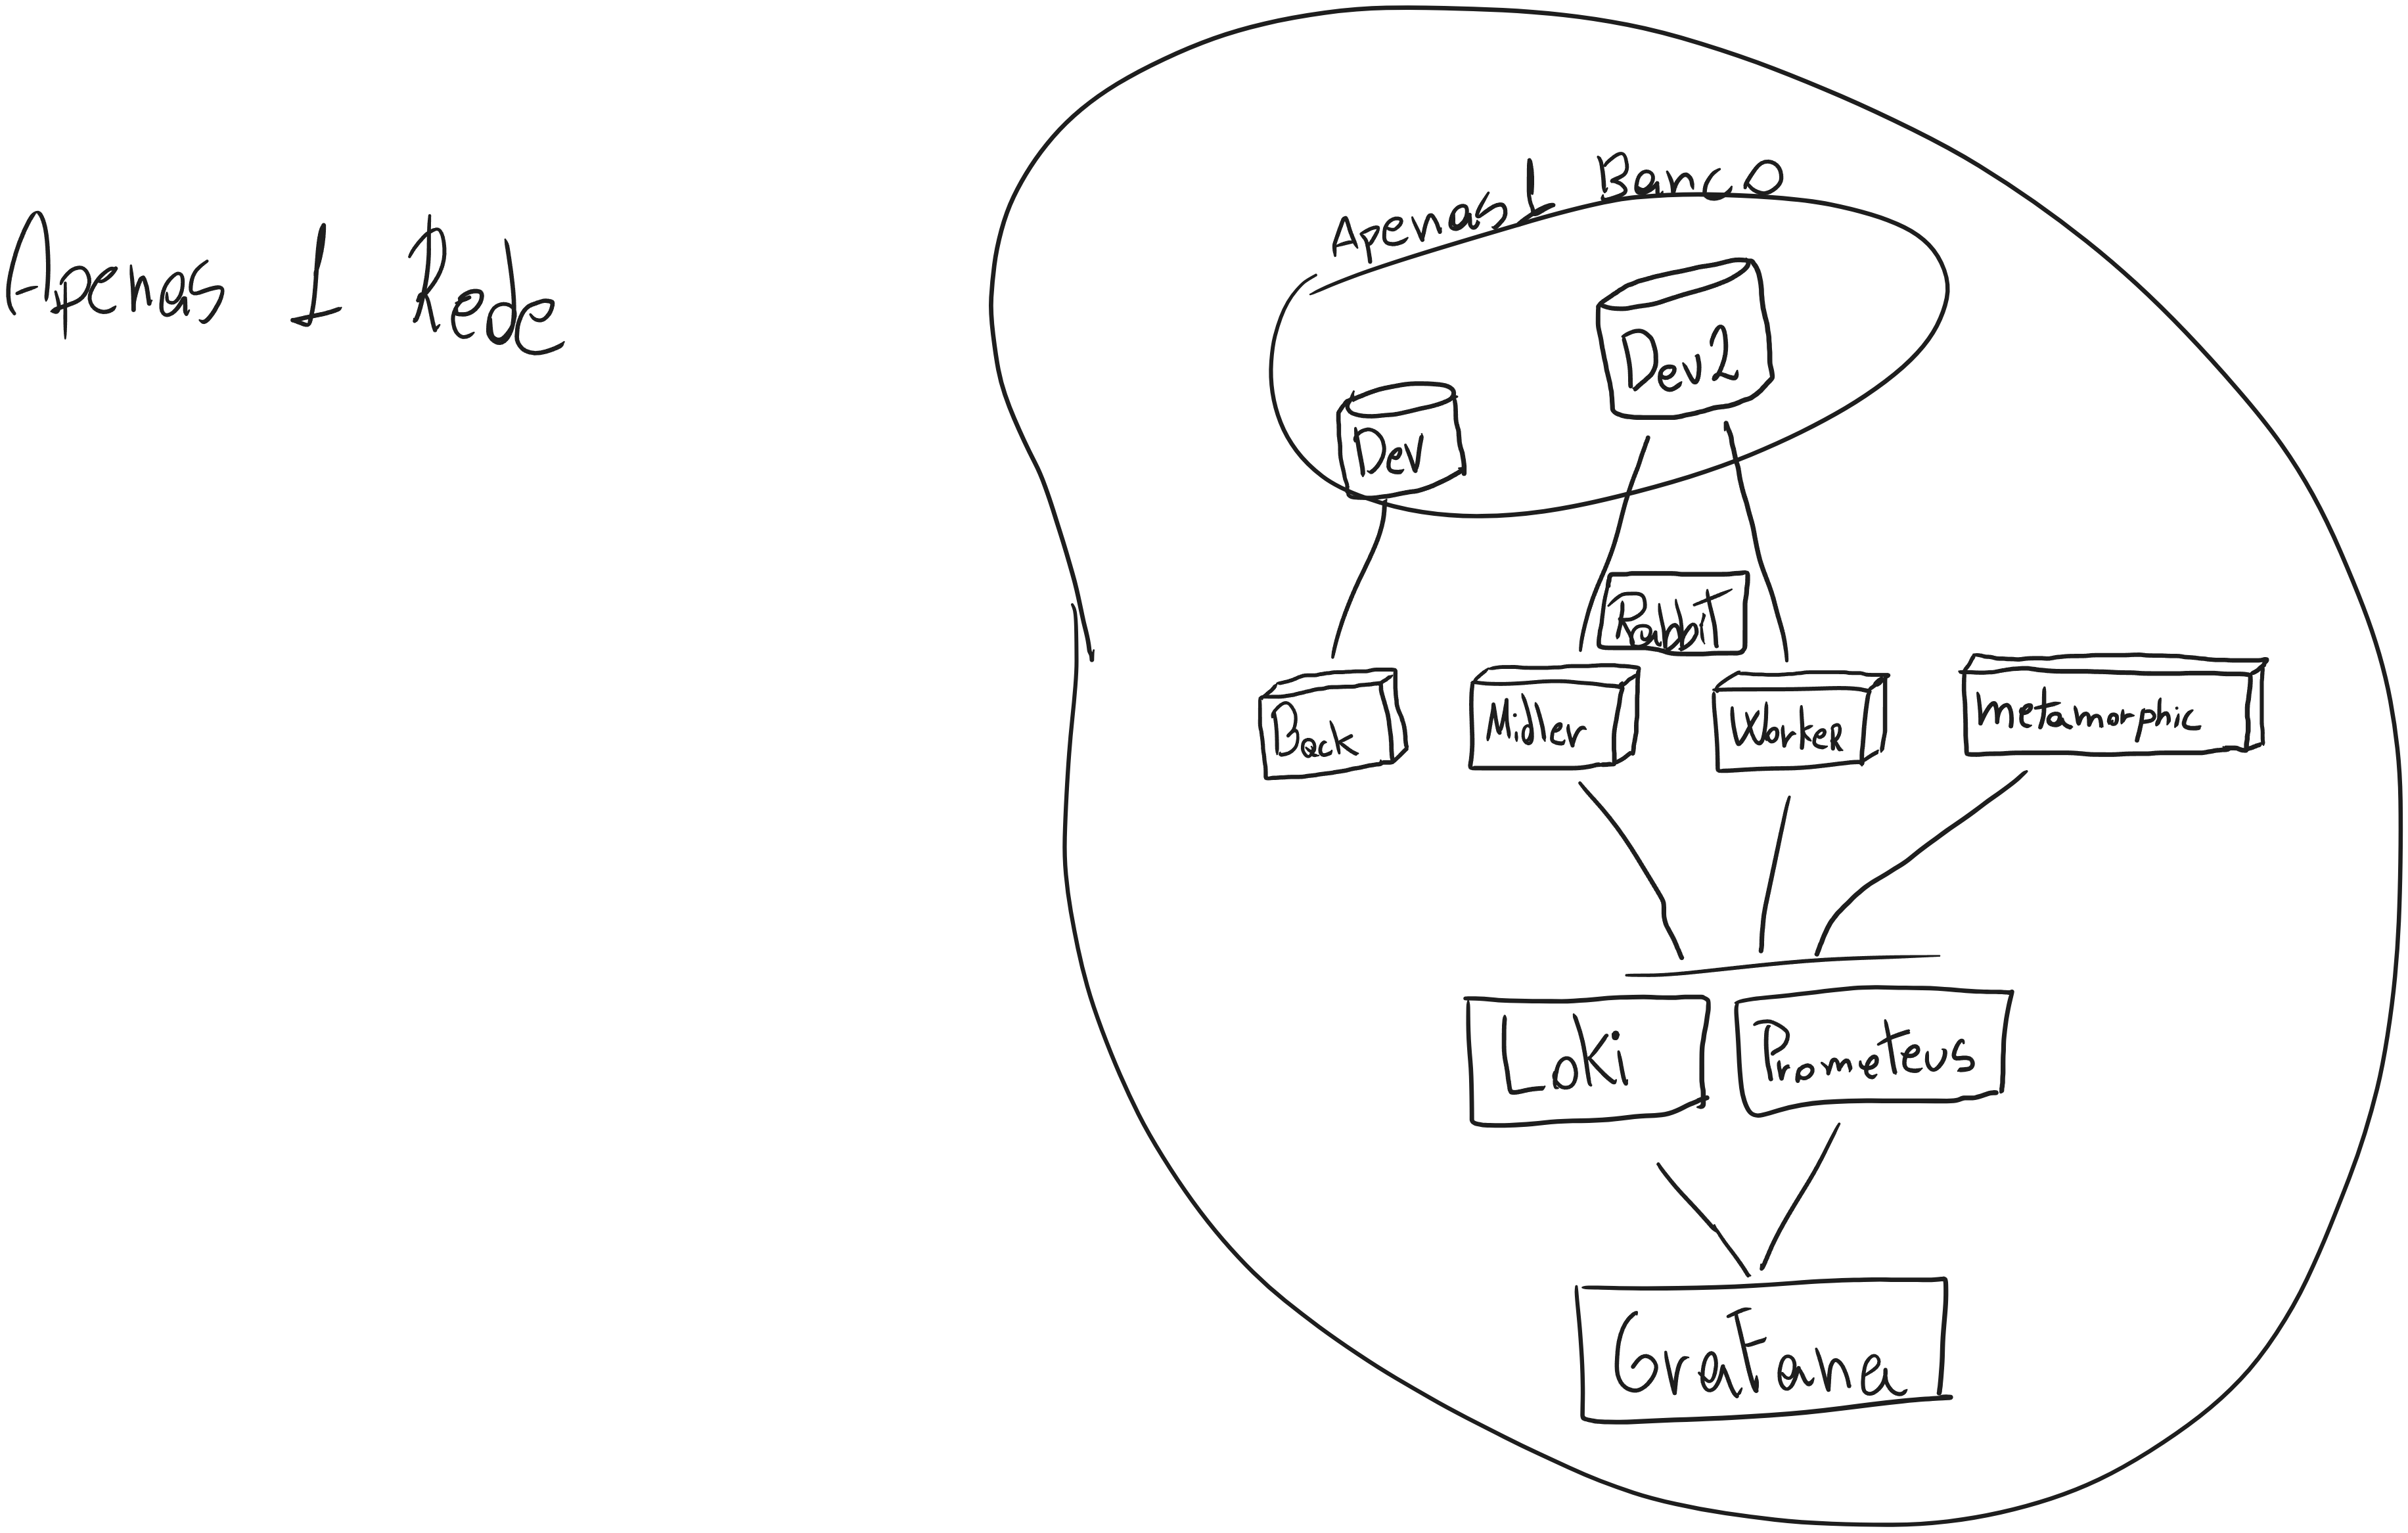 Apenas 1 Banco
Apenas 1 Rede
Dev2
Dev
Rabbit
Back
Midler
Worker
metamorphic
Loki
Prometeus
Grafana